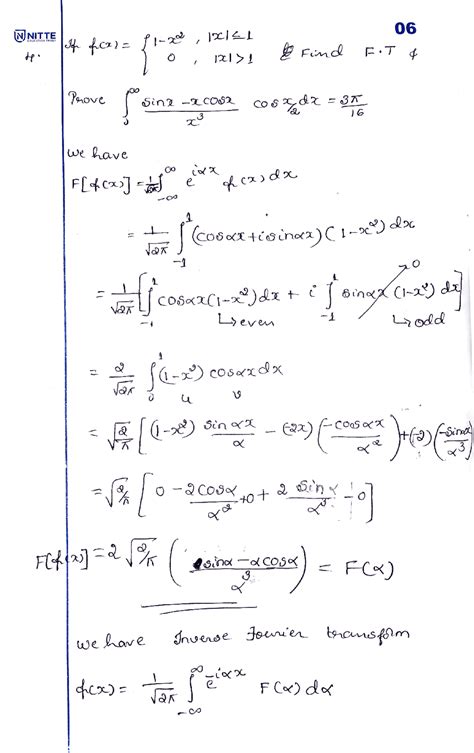 NITTE
06
4. If f(x) = { 1-x² , |x| ≤ 1
0 , |x| > 1 & Find F.T &
Prove ∫₀^∞ (sinx - xcosx)/x³ cos x/2 dx = 3π/16
we have
F[f(x)] = 1/√2π ∫_{-∞}^{∞} e^{iαx} f(x) dx
= 1/√2π ∫_{-1}^{1} (cosαx + i sinαx)(1-x²) dx
= 1/√2π [ ∫_{-1}^{1} cosαx(1-x²) dx + i ∫_{-1}^{1} sinαx(1-x²) dx ] → 0
↳ even ↳ odd
= 2/√2π ∫₀^1 (1-x²) cosαx dx
u v
= √2/π [ (1-x²) sinαx/α - (-2x) (-cosαx/α²) + (-2) (-sinαx/α³)
= √2/π [ 0 - 2cosα/α² + 0 + 2 sinα/α³ - 0 ]
F[f(x)] = 2 √2/π ( (sinα - αcosα)/α³ ) = F(α)
we have Inverse Fourier transform
f(x) = 1/√2π ∫_{-∞}^{∞} e^{-iαx} F(α) dα